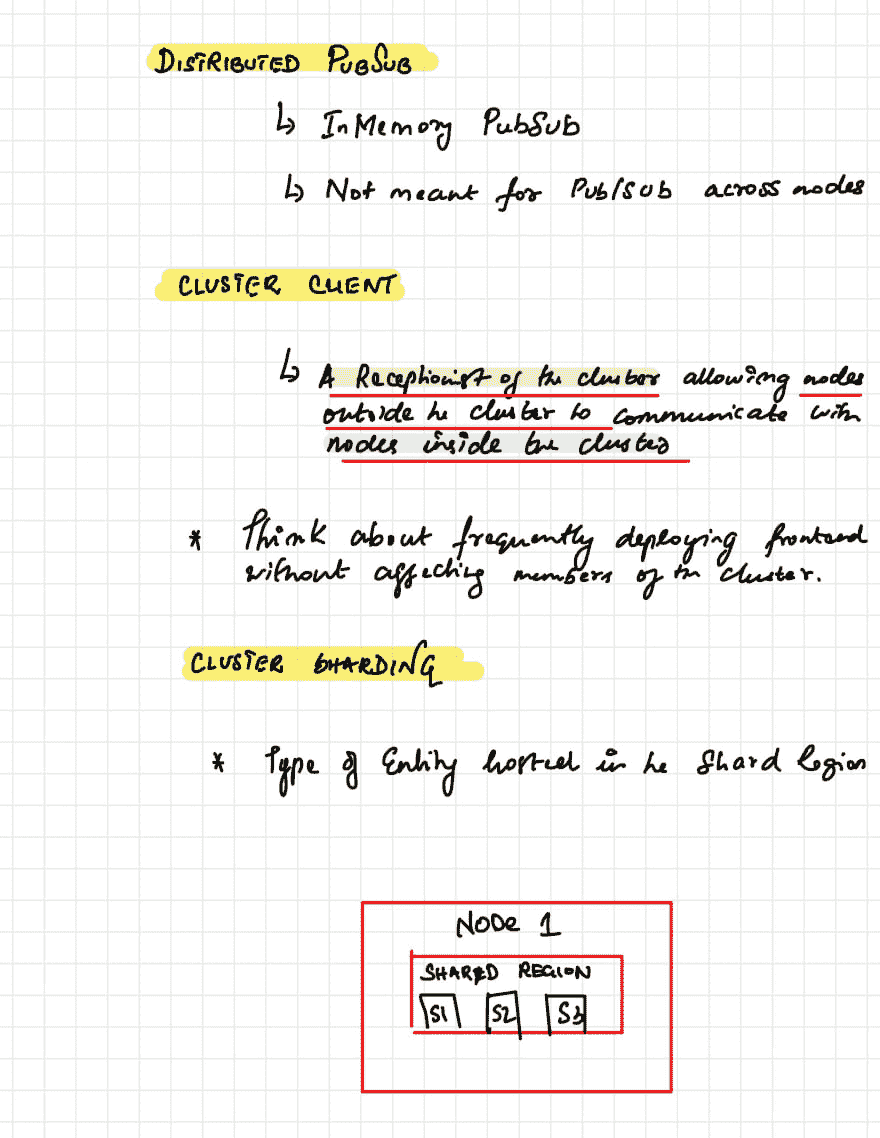 DISTRIBUTED PUBSUB
↳ InMemory PubSub
↳ Not meant for Pub/Sub across nodes
CLUSTER CLIENT
↳ A Receptionist of the cluster allowing nodes
outside he cluster to communicate with
nodes inside the cluster
* Think about frequently deploying frontend
without affecting members of the cluster.
CLUSTER SHARDING
* Type of Entity hosted in he Shard Region
NODE 1
SHARED REGION
S1 S2 S3